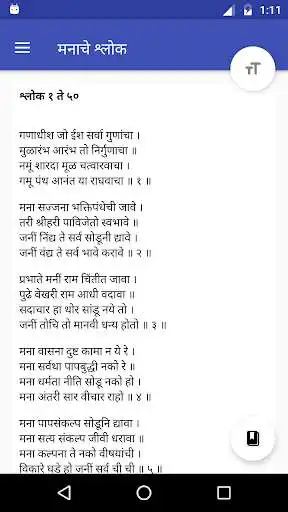 1:11
मनाचे श्लोक
श्लोक १ ते ५०
गणाधीश जो ईश सर्वा गुणांचा ।
मुळारंभ आरंभ तो निर्गुणाचा ॥
नमूं शारदा मूळ चत्वारवाचा ।
गमू पंथ आनंत या राघवाचा ॥ १ ॥
मना सज्जना भक्तिपंथेची जावे ।
तरी श्रीहरी पाविजेतो स्वभावे ॥
जनीं निंद्य ते सर्व सोडूनी द्यावे ।
जनीं वंद्य ते सर्व भावे करावे ॥ २ ॥
प्रभाते मनीं राम चिंतीत जावा ।
पुढे वेखरी राम आधी वदावा ॥
सदाचार हा थोर सांडू नये तो ।
जनीं तोचि तो मानवी धन्य होतो ॥ ३ ॥
मना वासना दुष्ट कामा न ये रे ।
मना सर्वथा पापबुद्धी नको रे ॥
मना धर्मता नीति सोडू नको हो ।
मना अंतरी सार वीचार राहो ॥ ४ ॥
मना पापसंकल्प सोडूनि द्यावा ।
मना सत्य संकल्प जीवी धरावा ॥
मना कल्पना ते नको वीषयांची ।
विकारे घडे हो जनीं सर्व ची ची ॥ ५ ॥